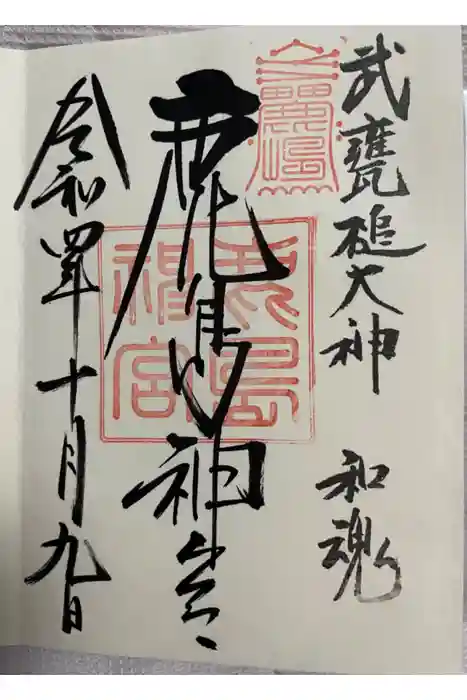 武甕槌大神 和魂
鹿島神宮
鹿島神宮
令和四年十月九日